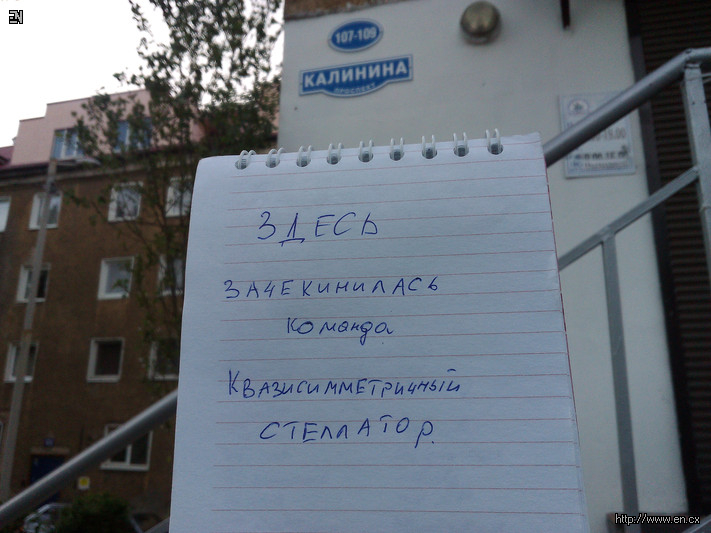 EN
107-109
КАЛИНИНА
ПРОСПЕКТ
ЗДЕСЬ
ЗАЧЕКИНИЛАСЬ
команда
Квазисимметричный
СТЕЛЛАТОР.
http://www.en.cx